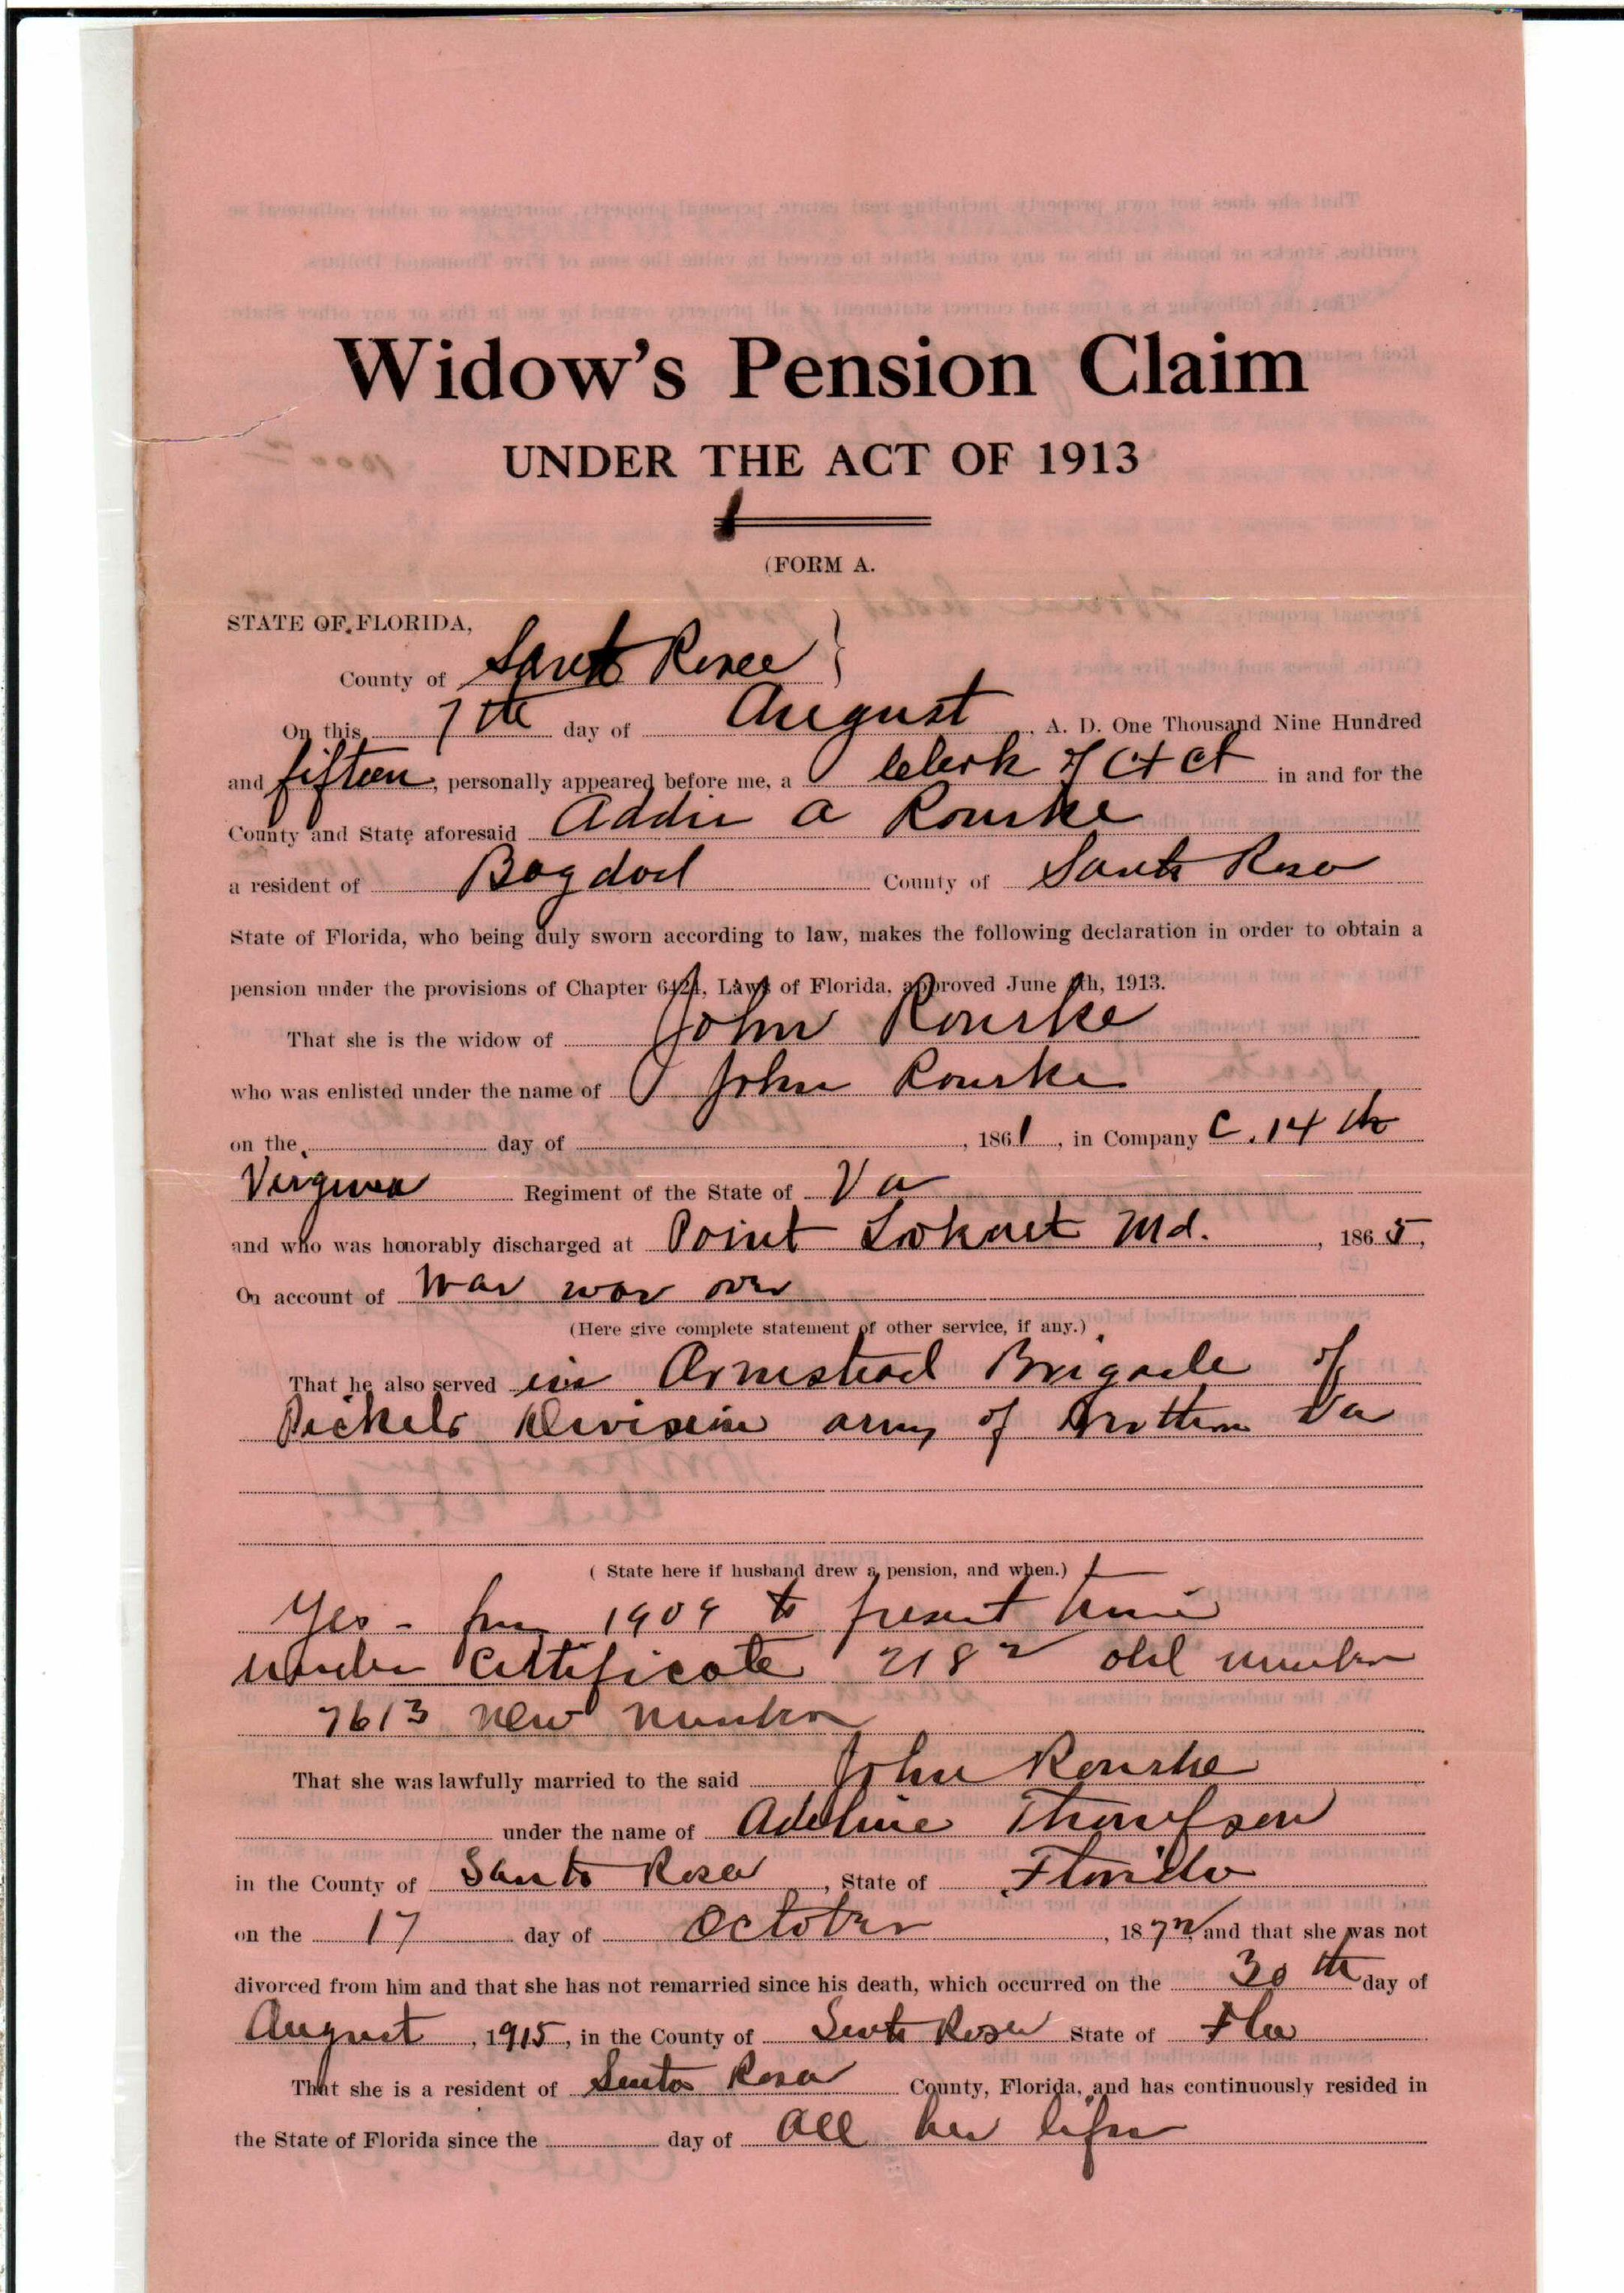 Widow's Pension Claim
UNDER THE ACT OF 1913
(FORM A.
STATE OF FLORIDA,
County of Santa Rosa }
On this 7th day of August, A. D. One Thousand Nine Hundred
and fifteen, personally appeared before me, a Clerk of Ct Ct in and for the
County and State aforesaid Addie A Rourke
a resident of Bagdad County of Santa Rosa
State of Florida, who being duly sworn according to law, makes the following declaration in order to obtain a
pension under the provisions of Chapter 6424, Laws of Florida, approved June 7th, 1913.
That she is the widow of John Rourke
who was enlisted under the name of John Rourke
on the day of , 1861, in Company C. 14th
Virginia Regiment of the State of Va
and who was honorably discharged at Point Lookout Md. , 1865,
On account of War was over
(Here give complete statement of other service, if any.)
That he also served in Armstead Brigade of
Pickets Division army of Northern Va
( State here if husband drew a pension, and when.)
Yes - from 1909 to present time
under Certificate 2182 old number
7613 new number
That she was lawfully married to the said John Rourke
under the name of Adeline Thompson
in the County of Santa Rosa, State of Florida
on the 17 day of October, 1872 and that she was not
divorced from him and that she has not remarried since his death, which occurred on the 30th day of
August, 1915, in the County of Santa Rosa State of Fla
That she is a resident of Santa Rosa County, Florida, and has continuously resided in
the State of Florida since the day of All her life